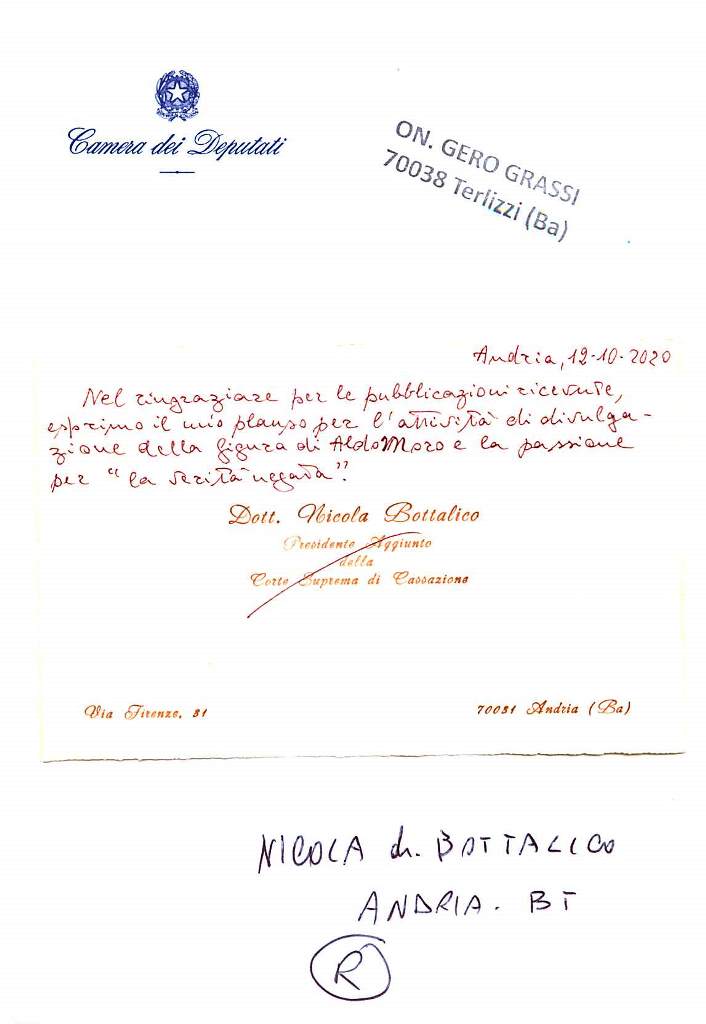 Camera dei Deputati
ON. GERO GRASSI
70038 Terlizzi (Ba)
Andria, 12-10-2020
Nel ringraziare per le pubblicazioni ricevute,
esprimo il mio plauso per l'attività di divulga-
zione della figura di Aldo Moro e la passione
per "la verità negata".
Dott. Nicola Bottalico
Presidente Aggiunto
della
Corte Suprema di Cassazione
Via Firenze, 31
70031 Andria (Ba)
NICOLA dr. BOTTALICO
ANDRIA. BT
R